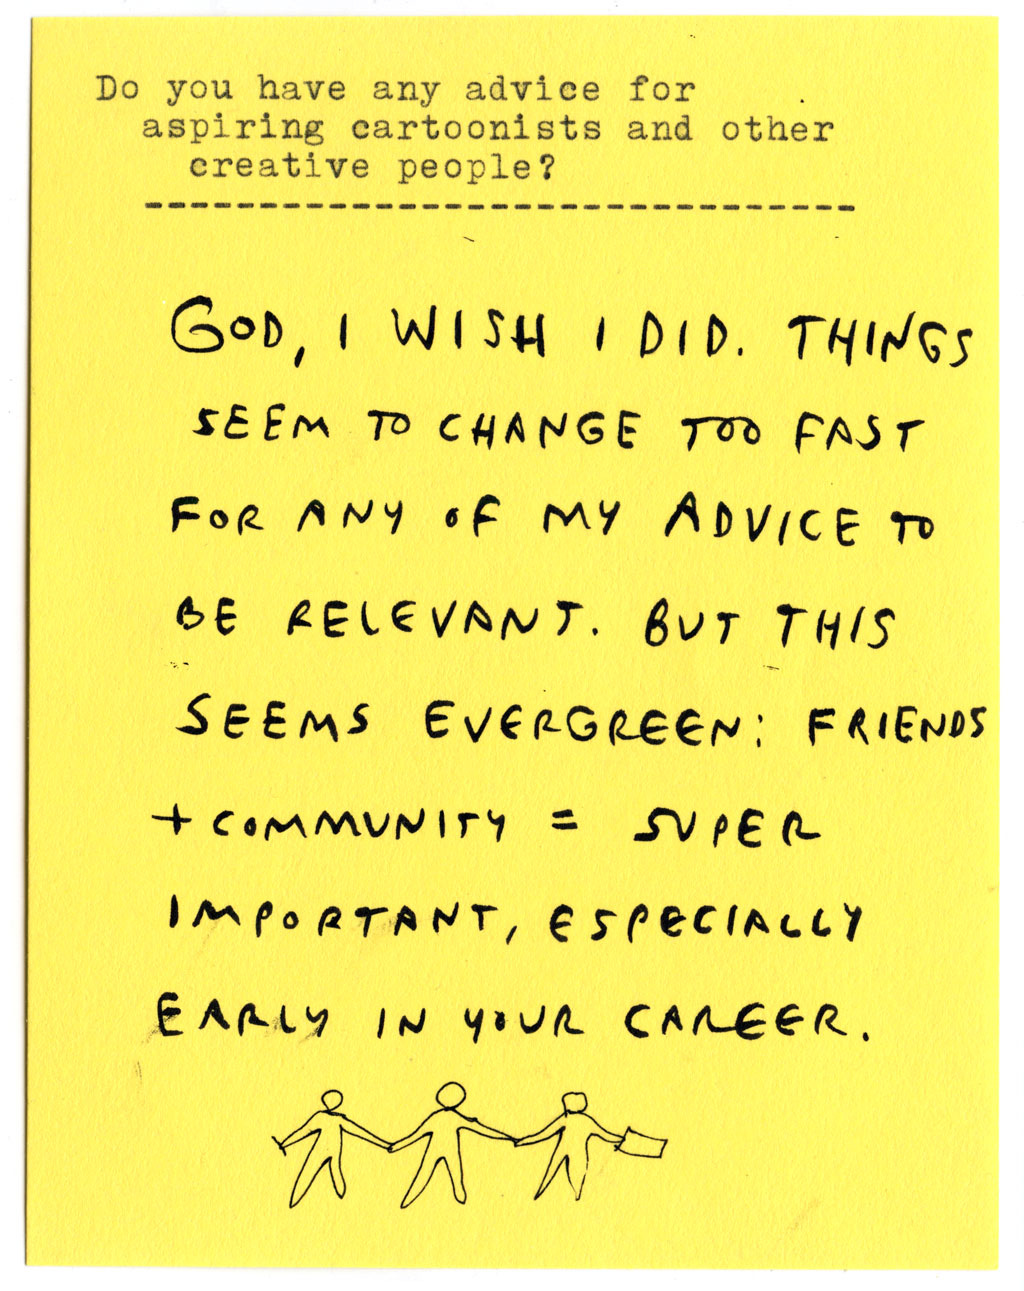 Do you have any advice for
aspiring cartoonists and other
creative people?
--------------------------------
GOD, I WISH I DID. THINGS
SEEM TO CHANGE TOO FAST
FOR ANY OF MY ADVICE TO
BE RELEVANT. BUT THIS
SEEMS EVERGREEN: FRIENDS
+ COMMUNITY = SUPER
IMPORTANT, ESPECIALLY
EARLY IN YOUR CAREER.